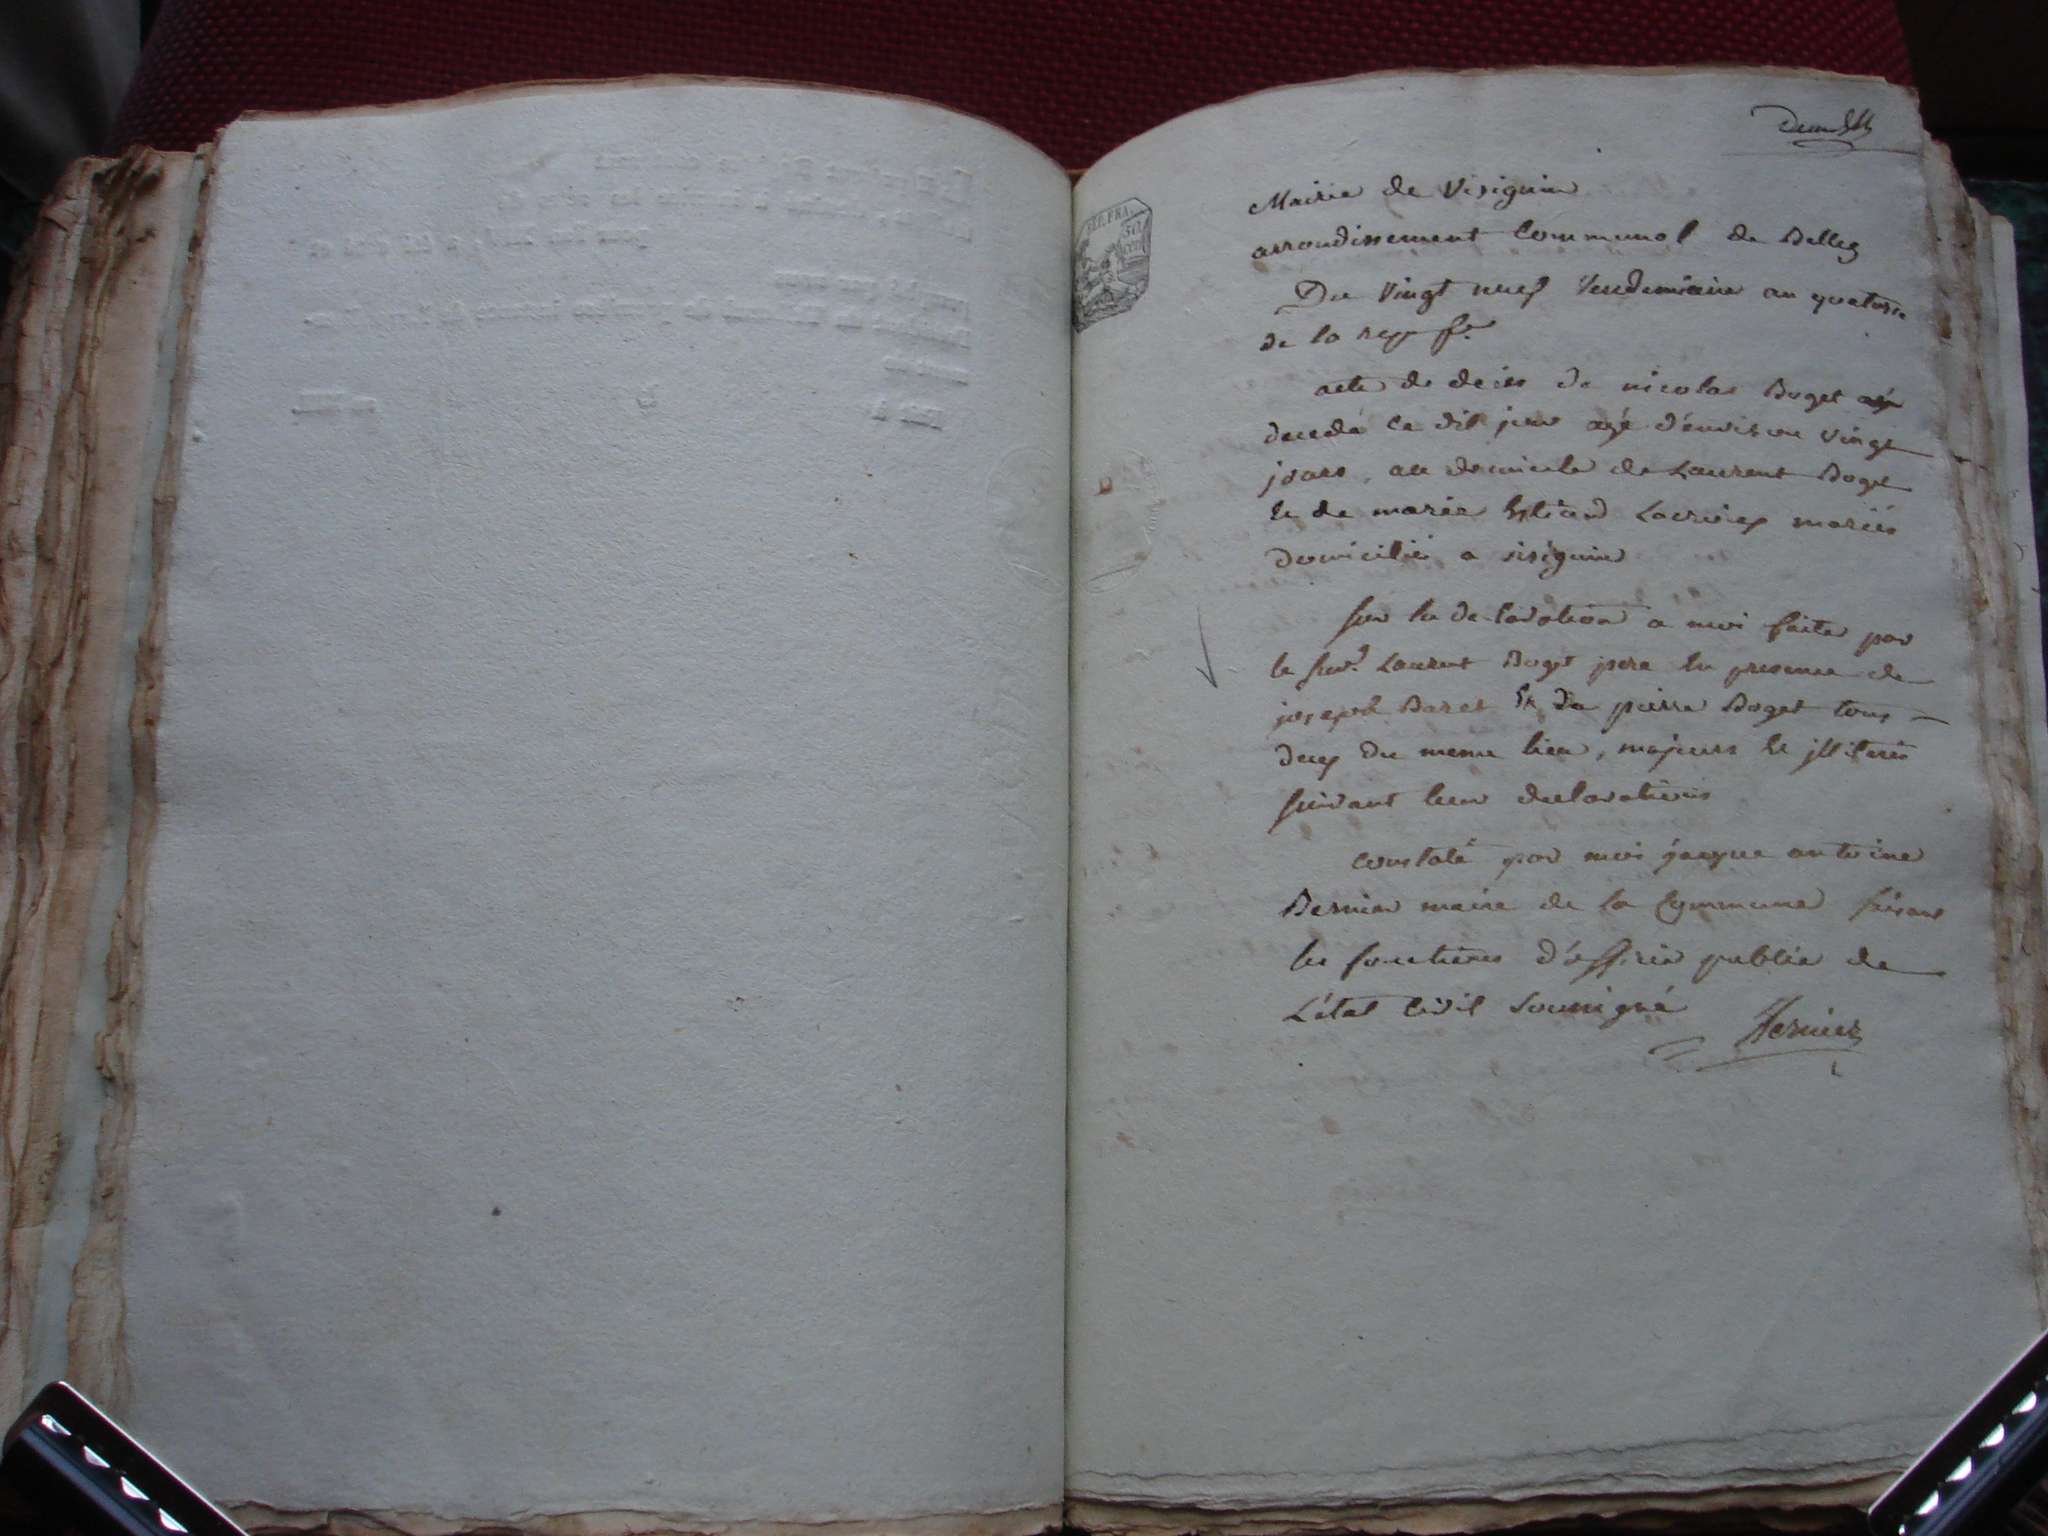 REP. FRA.
50
cen
Mairie de Visignin
arrondissement Communal de Belley
Du Vingt neuf Vendemiaire an quatorse
de la rep fse
acte de deces de nicolas Boget
decedé ce dit jour agé d'environ vingt
jours, au domicile de Laurent Boget
et de marie mariés
domicilié a visignin
sur la declaration a moi faite par
le sieur Laurent Boget pere en presence de
joseph Baret et de pierre Boget tous
deux du meme lieu, majeurs et illiterés
suivant leur declarations
constaté par moi jacque antoine
Bernier maire de la Commune faisant
les fonctions d'officier public de
L'état Civil soussigné
Bernier